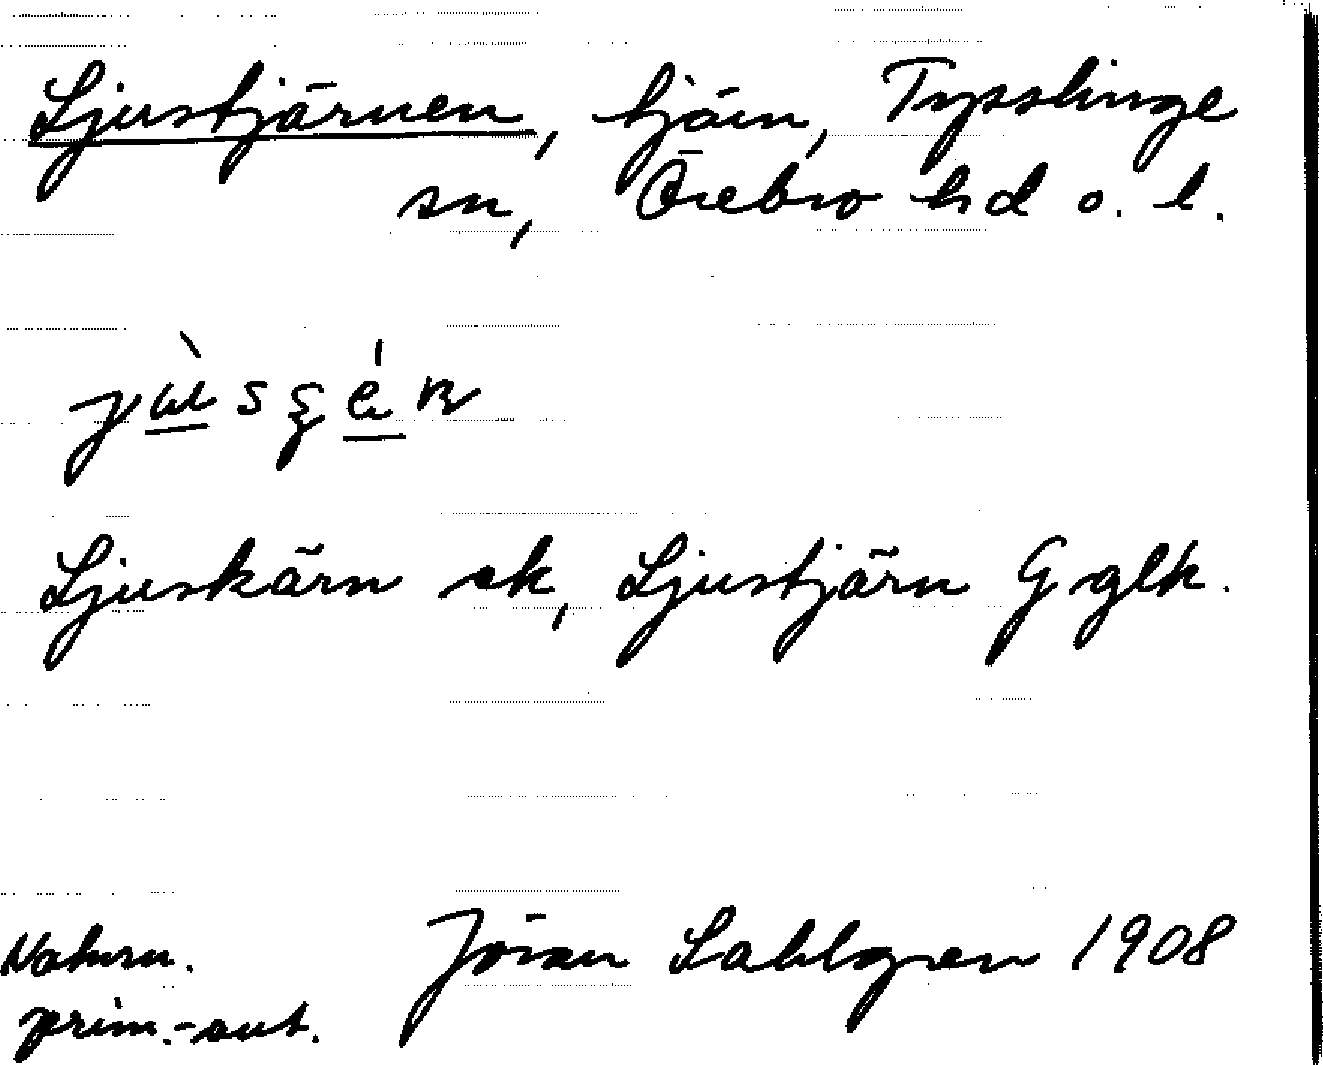 Ljustjärnen, tjärn, Tysslinge
sn, Örebro hd o. l.
Ljuskärn ek, Ljustjärn G glk.
Naturn. Jöran Sahlgren 1908
prim.-ant.